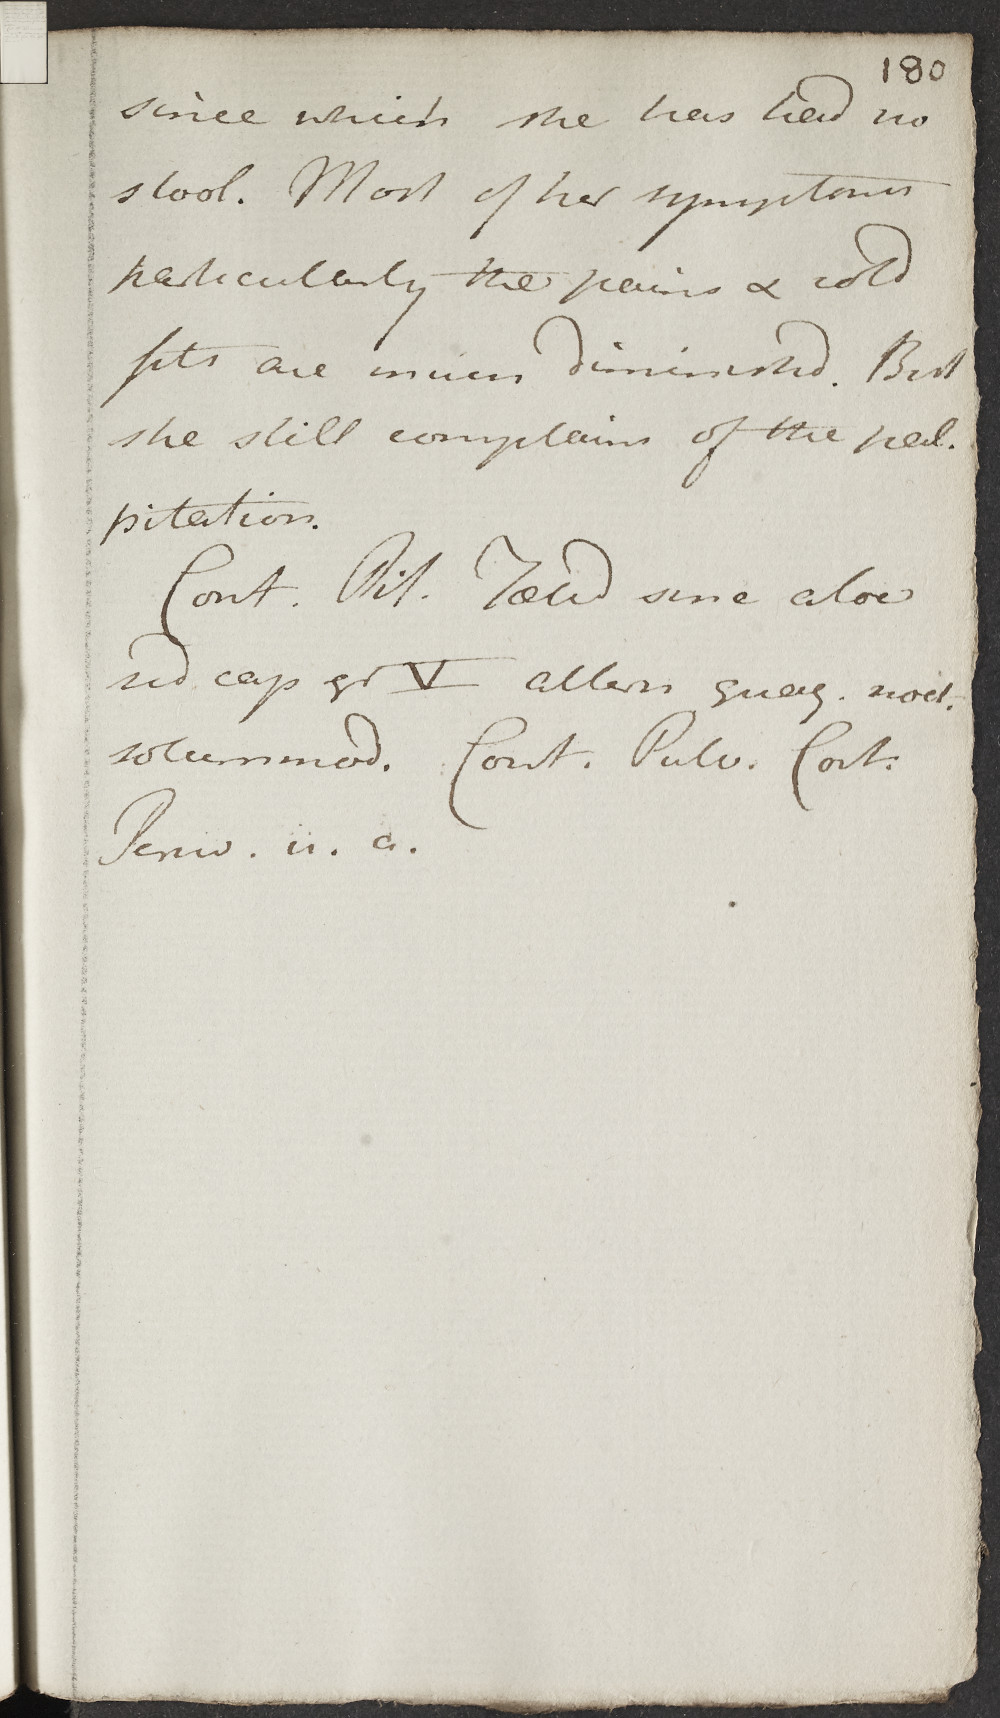 180
since which she has had no
stool. Most of her symptoms
particularly the pains & cold
fits are much diminished. But
she still complains of the pal-
pitation.
Cont. Pil. Fœtid sine aloe
sed cap gr V altern quaq. noct.
solummod. Cont. Pulv. Cort.
Peruv. u. a.